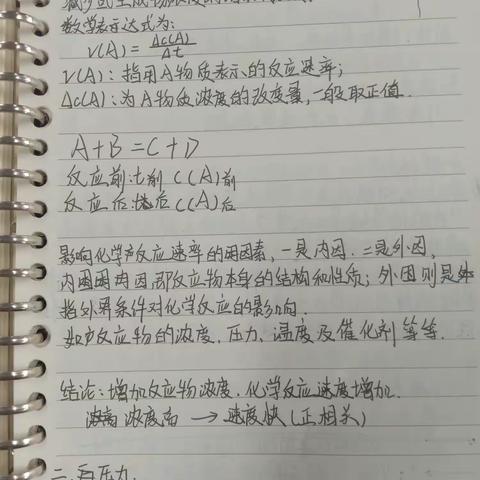 减少或生成物浓度的
数学表示达式为:
V(A) = Δc(A)/Δt
V(A):指用A物质表示的反应速率;
Δc(A):为A物质浓度的改变量,一般取正值.
A+B=C+D
反应前:t前 C(A)前
反应后:t后 C(A)后
影响化学反应速率的因素,一是内因.二是外因,
内因即反应物本身的结构和性质;外因则是
指外界条件对化学反应的影响.
如反应物的浓度.压力.温度及催化剂等等.
结论:增加反应物浓度.化学反应速度增加.
浓度高 → 速度快(正相关)
二.压力.